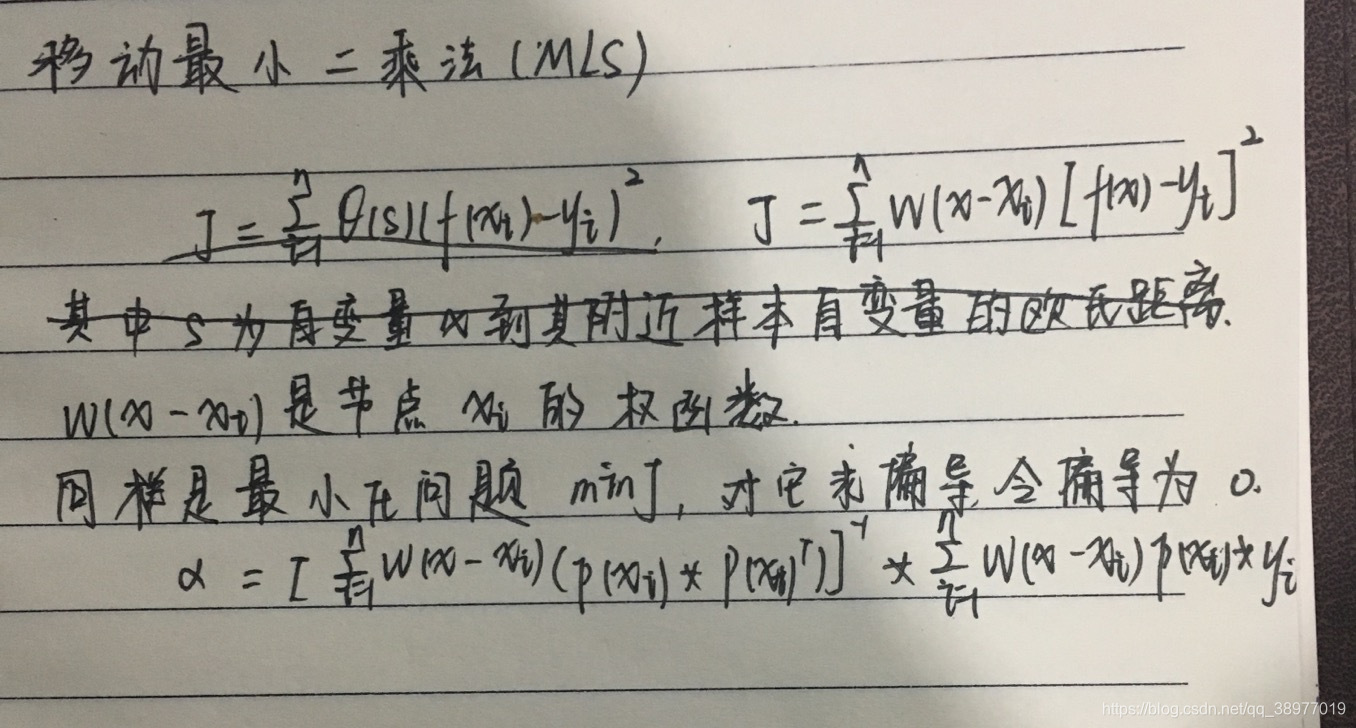 移动最小二乘法(MLS)
J = ∑_{i=1}^{n} θ(s)(f(x_i)-y_i)^2. J = ∑_{i=1}^{n} W(x-x_i)[f(x)-y_i]^2
其中 s 为自变量 x 到其附近样本自变量的欧氏距离.
W(x-x_i) 是节点 x_i 的权函数.
同样是最小化问题 min J, 对它求偏导,令偏导为 0.
α = [∑_{i=1}^{n} W(x-x_i)(p(x_i)*p(x_i)^T)]^{-1} * ∑_{i=1}^{n} W(x-x_i)p(x_i)*y_i
https://blog.csdn.net/qq_38977019